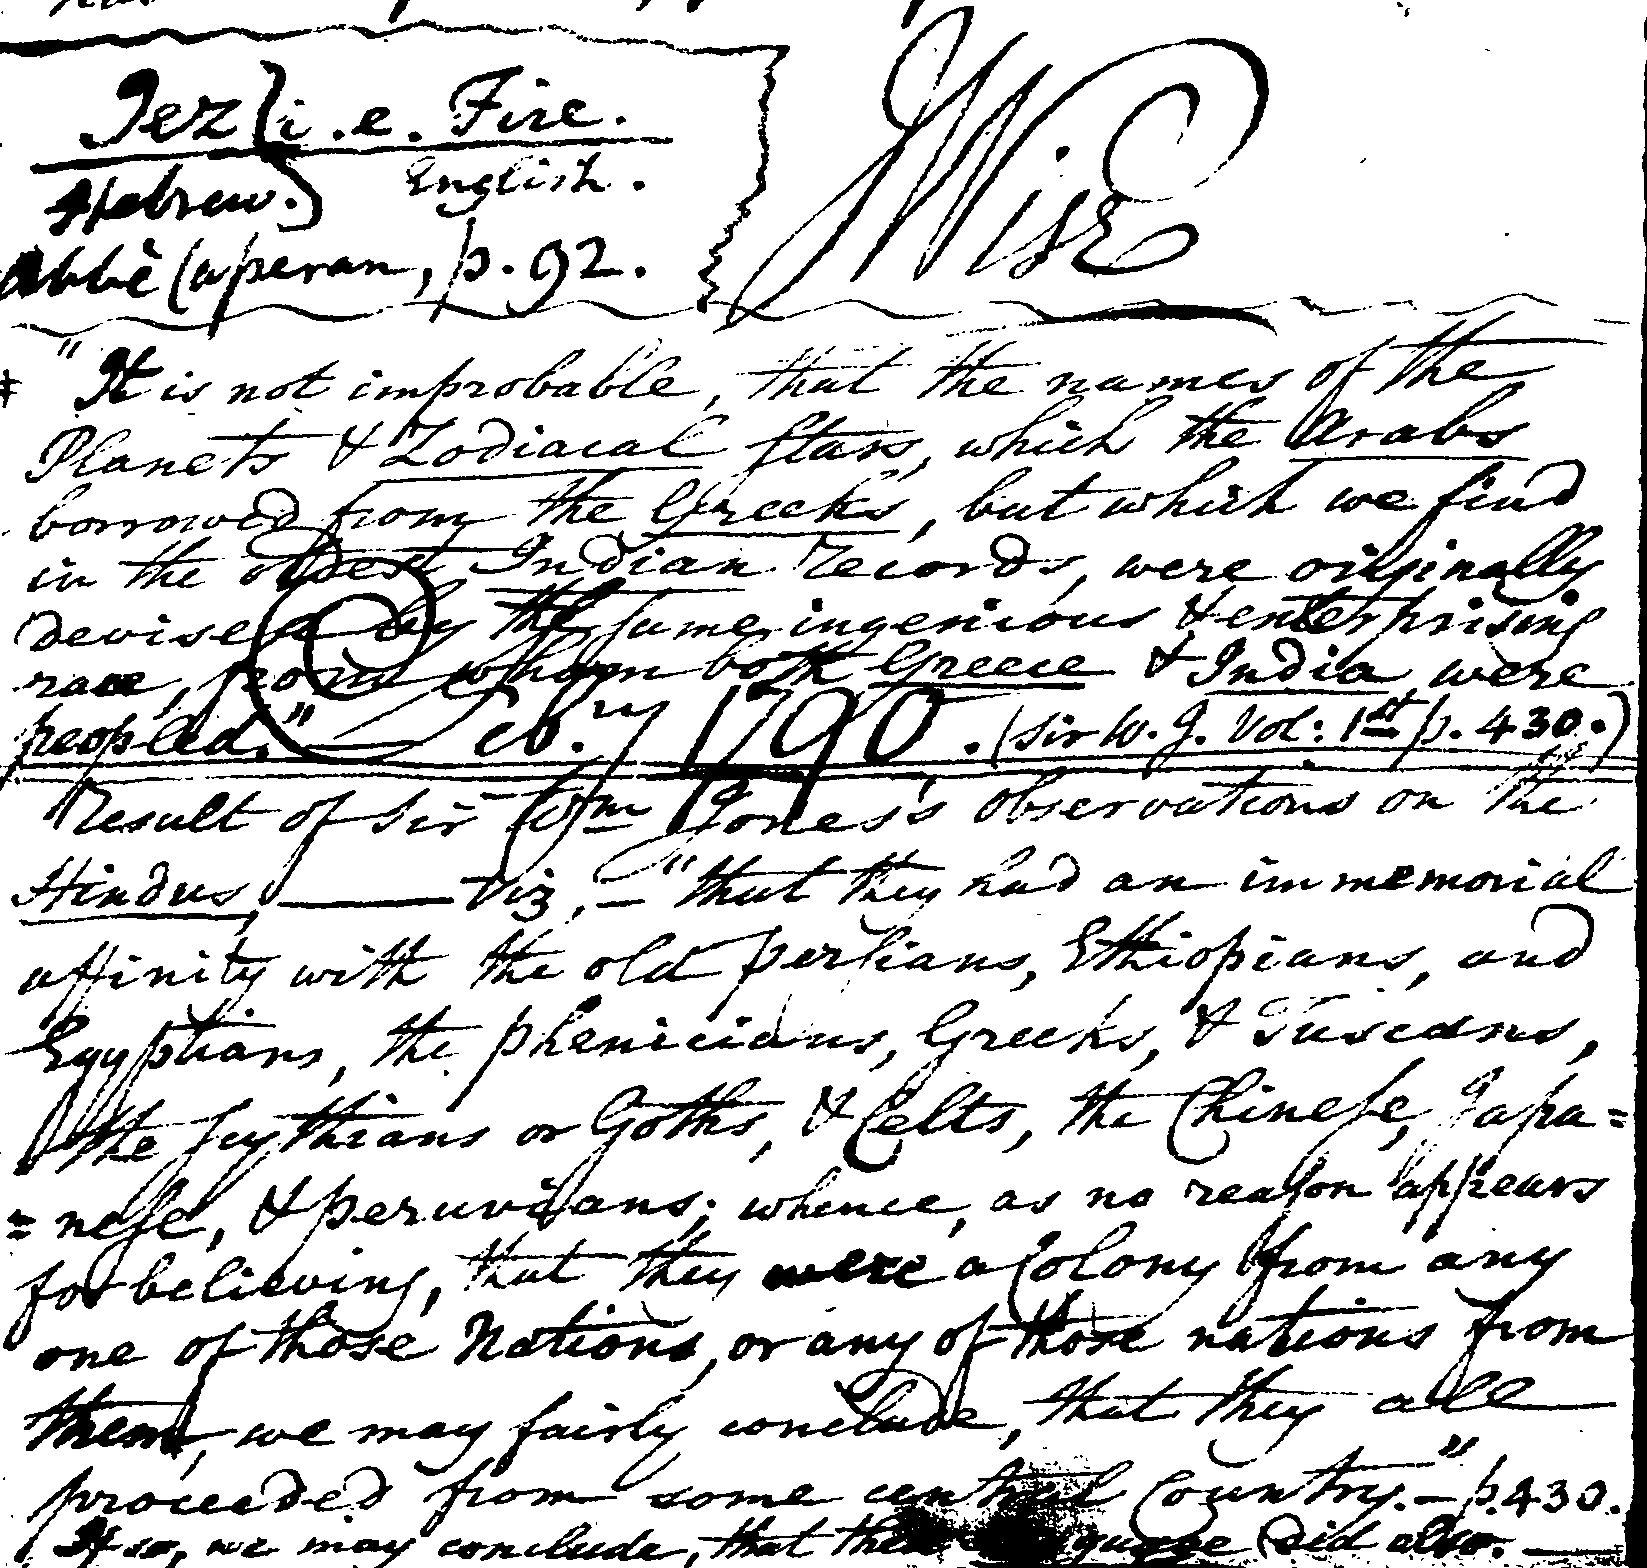 Jez } i.e. Fire.
Hebrew. } English.
abbè Caperan, p. 92.
Wise
"It is not improbable, that the names of the
Planets & Zodiacal stars, which the Arabs
borrowed from the Greeks, but which we find
in the oldest Indian records, were originally
devised by the same ingenious & enterprising
race, from whom both Greece & India were
peopled." Feb.ry 1790. (Sir W. J. Vol: 1st p. 430.)
Result of Sir Wm Jones's observations on the
Hindus, — Viz, — "that they had an immemorial
affinity with the old persians, Ethiopians, and
Egyptians, the phenicians, Greeks, & Tuscans,
the Scythians or Goths, & Celts, the Chinese, Japa=
=nese, & peruvians; whence, as no reason appears
for believing, that they were a Colony from any
one of those Nations, or any of those nations from
them, we may fairly conclude, that they all
proceeded from some central Country." — p. 430.
If so, we may conclude, that did also. —